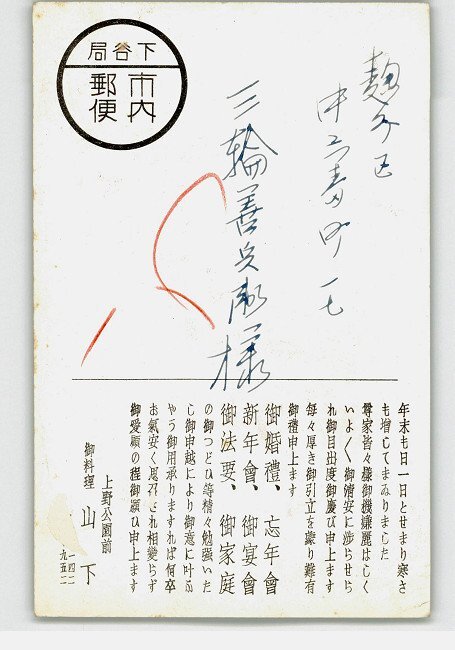 下谷局
市内
郵便
麹町区
中六番町一七
三輪善兵衛様
年末も日一日とせまり寒さ
も増してまゐりました
尊家皆々様御機嫌麗はしく
いよ〱御清安に渉らせら
れ御目出度御慶び申上ます
毎々厚き御引立を蒙り難有
御禮申上ます
御婚禮、忘年會
新年會、御宴會
御法要、御家庭
の御つどひ等精々勉強いた
し御申越により御意に叶ふ
やう御用承りますれば何卒
お氣安く思召され相變らず
御愛顧の程御願ひ申上ます
上野公園前
御料理 山下
一四二
九五二